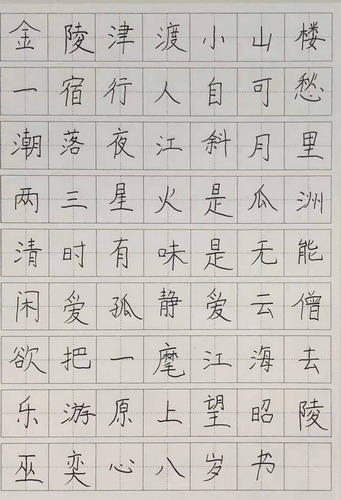 金陵津渡小山楼
一宿行人自可愁
潮落夜江斜月里
两三星火是瓜洲
清时有味是无能
闲爱孤静爱云僧
欲把一麾江海去
乐游原上望昭陵
巫奕心八岁书